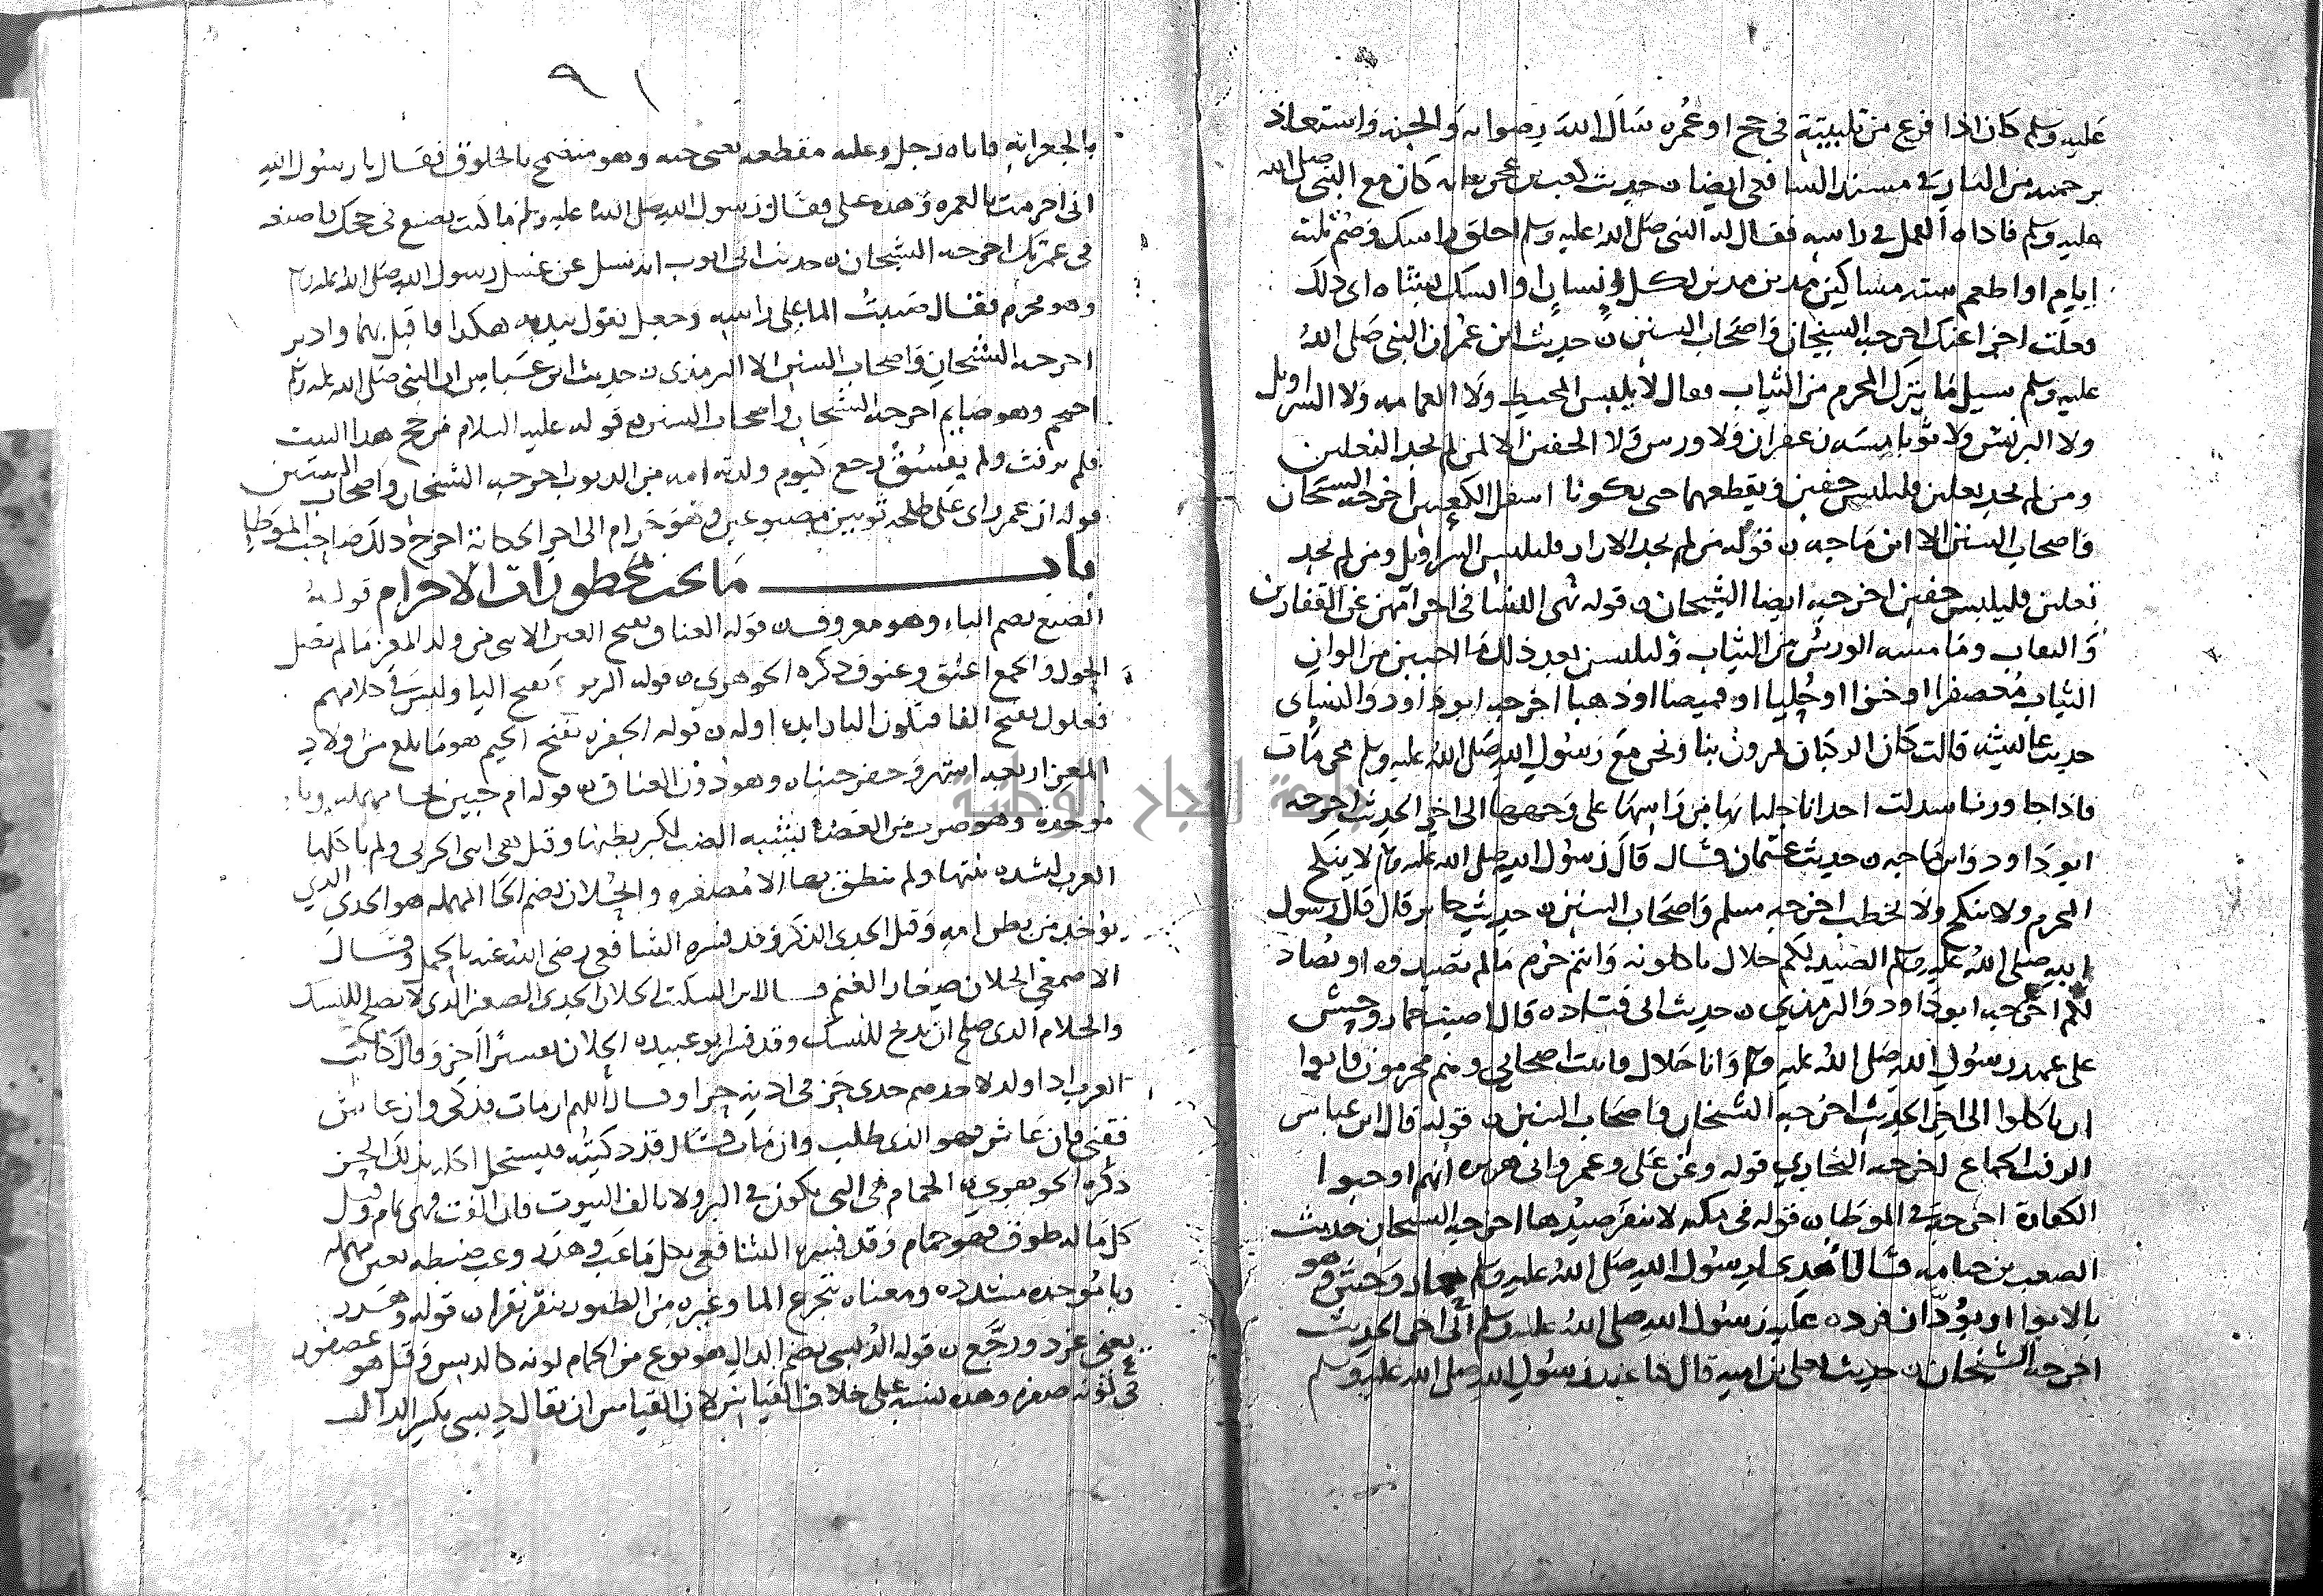 عليه وسلم كان اذا فرغ من تلبيته في حج او عمره سال الله رضوانه والجنه واستعاذ
برحمته من النار في مسند الشافعي ايضا ن حديث كعب بن عجره انه كان مع النبي صلى الله
عليه وسلم فاذاه القمل في راسه فقال له النبي صلى الله عليه وسلم احلق راسك وصم ثلثه
ايام او اطعم سته مساكين مدين مدين لكل انسان او انسك بشاه اي ذلك
فعلت اجزا عنك اخرجه الشيخان واصحاب السنن ن حديث ابن عمر ان النبي صلى الله
عليه وسلم سيل ما يترك المحرم من الثياب فقال لا يلبس المخيط ولا العمامه ولا السراويل
ولا البرنس ولا ثوبا مسه زعفران ولا ورس ولا الخفين الا لمن لم يجد النعلين
ومن لم يجد نعلين فليلبس خفين ويقطعهما حتى يكونا اسفل الكعبين اخرجه الشيخان
واصحاب السنن الا ابن ماجه ن قوله من لم يجد الازار فليلبس السراويل ومن لم يجد
نعلين فليلبس خفين اخرجه ايضا الشيخان ن قوله نهى النسا في احرامهن عن القفازين
والنقاب وما مسه الورس من الثياب وليلبسن بعد ذلك ما احببن من الوان
الثياب معصفرا او خزا او حليا او قميصا او ذهبا اخرجه ابو داود والنساي
حديث عائشه قالت كان الركبان يمرون بنا ونحن مع رسول الله صلى الله عليه وسلم محرمات
فاذا جاورنا سدلت احدانا جلبابها من راسها على وجهها الى اخر الحديث اخرجه
ابو داود وابن ماجه ن حديث عثمان قال قال رسول الله صلى الله عليه وسلم لا ينكح
المحرم ولا ينكح ولا يخطب اخرجه مسلم واصحاب السنن ن حديث جابر قال قال رسول
الله صلى الله عليه وسلم الصيد لكم حلال تاكلونه وانتم حرم ما لم تصيدوه او يصاد
لكم اخرجه ابو داود والترمذي ن حديث ابي قتاده قال اصبت حمار وحش
على عهد رسول الله صلى الله عليه وسلم وانا حلال فاتيت اصحابي وهم محرمون فابوا
ان ياكلوا الى اخر الحديث اخرجه الشيخان واصحاب السنن ن قوله قال ابن عباس
الرفث الجماع اخرجه البخاري قوله وعن علي وعمر وابي هريره انهم اوجبوا
الكفارة اخرجه في الموطا ن قوله في مكه لا ينفر صيدها اخرجه الشيخان حديث
الصعب بن جثامه قال اهدي لرسول الله صلى الله عليه وسلم حمار وحش وهو
بالابوا او بودان فرده عليه رسول الله صلى الله عليه وسلم الى اخر الحديث
اخرجه الشيخان ن حديث يعلى بن اميه قال كنا عند رسول الله صلى الله عليه وسلم
٩١
بالجعرانه فاتاه رجل وعليه مقطعه يعني جبه وهو متضمخ بالخلوق فقال يا رسول الله
اني احرمت بالعمره وهذه علي فقال رسول الله صلى الله عليه وسلم ما كنت تصنع في حجك فاصنعه
في عمرتك اخرجه الشيخان ن حديث ابي ايوب انه سئل عن غسل رسول الله صلى الله عليه وسلم
وهو محرم فقال صببت الما على راسه وجعل يقول بيديه هكذا فاقبل بهما وادبر
اخرجه الشيخان واصحاب السنن الا الترمذي ن حديث ابن عباس ان النبي صلى الله عليه وسلم
احتجم وهو صايم اخرجه الشيخان واصحاب السنن ن قوله عليه السلام من حج هذا البيت
فلم يرفث ولم يفسق رجع كيوم ولدته امه من الذنوب اخرجه الشيخان واصحاب السنن
قوله ان عمر راى على طلحه ثوبين مصبوغين وهو حرام الى اخر الحكاية اخرج ذلك صاحب الموطا
باب ما يجب بمحظورات الاحرام قوله
الضبع بضم الباء وهو معروف ن قوله العناق بفتح العين الانثى من ولد المعز ما لم تصل
الحول والجمع اعنق وعنوق ذكره الجوهري ن قوله اليربوع بفتح اليا وليس في كلامهم
فعلول بفتح الفا فتكون اليا زايده اوله ن قوله الجفره بفتح الجيم هو ما بلغ من اولاد
المعز اربعه اشهر وجفر جنباه وهو دون العناق ن قوله ام حبين بحا مهمله وبا
موحدة وهو ضرب من العضاه يشبه الضب لكبر بطنها وقيل هي انثى الحربى ولم ياكلها
العرب لشده نتنها ولم ينطق بها الا مصغره والحلان بضم الحا المهمله هو الجدي الذي
يوخذ من بطن امه وقيل الجدي الذكر وقد فسره الشافعي رضي الله عنه بالحمل وقال
الاصمعي الحلان صغار الغنم قال ابن السكيت الحلان الجدي الصغير الذي لا يصلح للنسك
والحلام الذي صلح ان يذبح للنسك وقد فسر ابو عبيده الحلان تفسيرا اخر وقال كانت
العرب اذا ولد لاحدهم جدي حز في اذنه حزا وقال اللهم ان مات فذكي وان عاش
فقني فان عاش فهو الذي طلب وان مات قال قد ذكيته فيستحل اكله بذلك الحز
ذكره الجوهري ن الحمام هي التي تكون في البر ولا تالف البيوت فان الفت فهي يمام وقيل
كل ما له طوق فهو حمام وقد فسره الشافعي بكل ما عب وهدر وعب ضبطه بعين مهمله
وبا موحده مشدده ومعناه تجرع الما وغيره من الطيور ينقر نقرا ن قوله وهدر
يعني غرد ورجع ن قوله الدبسي بضم الدال هو نوع من الحمام لونه كالدبس وقيل هو عصفور
في لونه صفره وهذه نسبه على خلاف القياس لان القياس ان يقال دبسي بكسر الدال
جامعة النجاح الوطنية